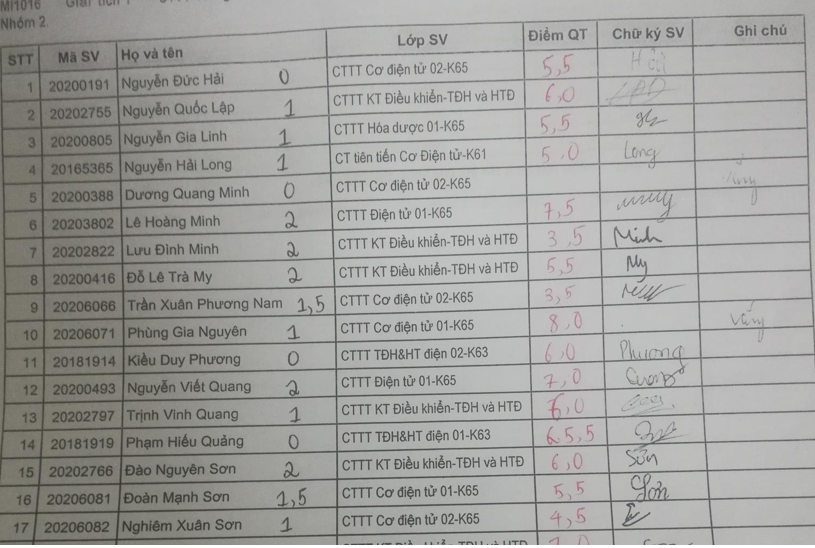 MI1016 Giải tích
Nhóm 2
STT Mã SV Họ và tên Lớp SV Điểm QT Chữ ký SV Ghi chú
1 20200191 Nguyễn Đức Hải 0 CTTT Cơ điện tử 02-K65 5,5 Hải
2 20202755 Nguyễn Quốc Lập 1 CTTT KT Điều khiển-TĐH và HTĐ 6,0
3 20200805 Nguyễn Gia Linh 1 CTTT Hóa dược 01-K65 5,5
4 20165365 Nguyễn Hải Long 1 CT tiên tiến Cơ Điện tử-K61 5,0 Long
5 20200388 Dương Quang Minh 0 CTTT Cơ điện tử 02-K65
6 20203802 Lê Hoàng Minh 2 CTTT Điện tử 01-K65 7,5
7 20202822 Lưu Đình Minh 2 CTTT KT Điều khiển-TĐH và HTĐ 3,5 Minh
8 20200416 Đỗ Lê Trà My 2 CTTT KT Điều khiển-TĐH và HTĐ 5,5 My
9 20206066 Trần Xuân Phương Nam 1,5 CTTT Cơ điện tử 02-K65 3,5
10 20206071 Phùng Gia Nguyên 1 CTTT Cơ điện tử 01-K65 8,0 vắng
11 20181914 Kiều Duy Phương 0 CTTT TĐH&HT điện 02-K63 6,0 Phương
12 20200493 Nguyễn Viết Quang 2 CTTT Điện tử 01-K65 7,0 Quang
13 20202797 Trịnh Vinh Quang 1 CTTT KT Điều khiển-TĐH và HTĐ 6,0
14 20181919 Phạm Hiếu Quảng 0 CTTT TĐH&HT điện 01-K63 5,5
15 20202766 Đào Nguyên Sơn 2 CTTT KT Điều khiển-TĐH và HTĐ 6,0 Sơn
16 20206081 Đoàn Mạnh Sơn 1,5 CTTT Cơ điện tử 01-K65 5,5 Sơn
17 20206082 Nghiêm Xuân Sơn 1 CTTT Cơ điện tử 02-K65 4,5